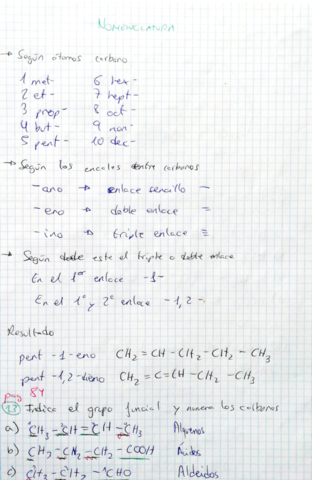 NOMENCLATURA
→ Según átomos carbono
1 met-    6 hex-
2 et-    7 hept-
3 prop-    8 oct-
4 but-    9 non-
5 pent-    10 dec-
→ Según los enlaces entre carbonos
-ano → enlace sencillo —
-eno → doble enlace =
-ino → triple enlace ≡
→ Según donde este el triple o doble enlace
En el 1er enlace -1-
En el 1º y 2º enlace -1,2-
Resultado
pent-1-eno CH₂=CH-CH₂-CH₂-CH₃
pent-1,2-dieno CH₂=C=CH-CH₂-CH₃
pag 84
13 Indica el grupo funcial y numera los carbonos
a) CH₃-CH=CH-CH₃ Alquenos
b) CH₃-CH₂-CH₂-COOH Ácidos
c) CH₃-CH₂-CHO Aldeidos